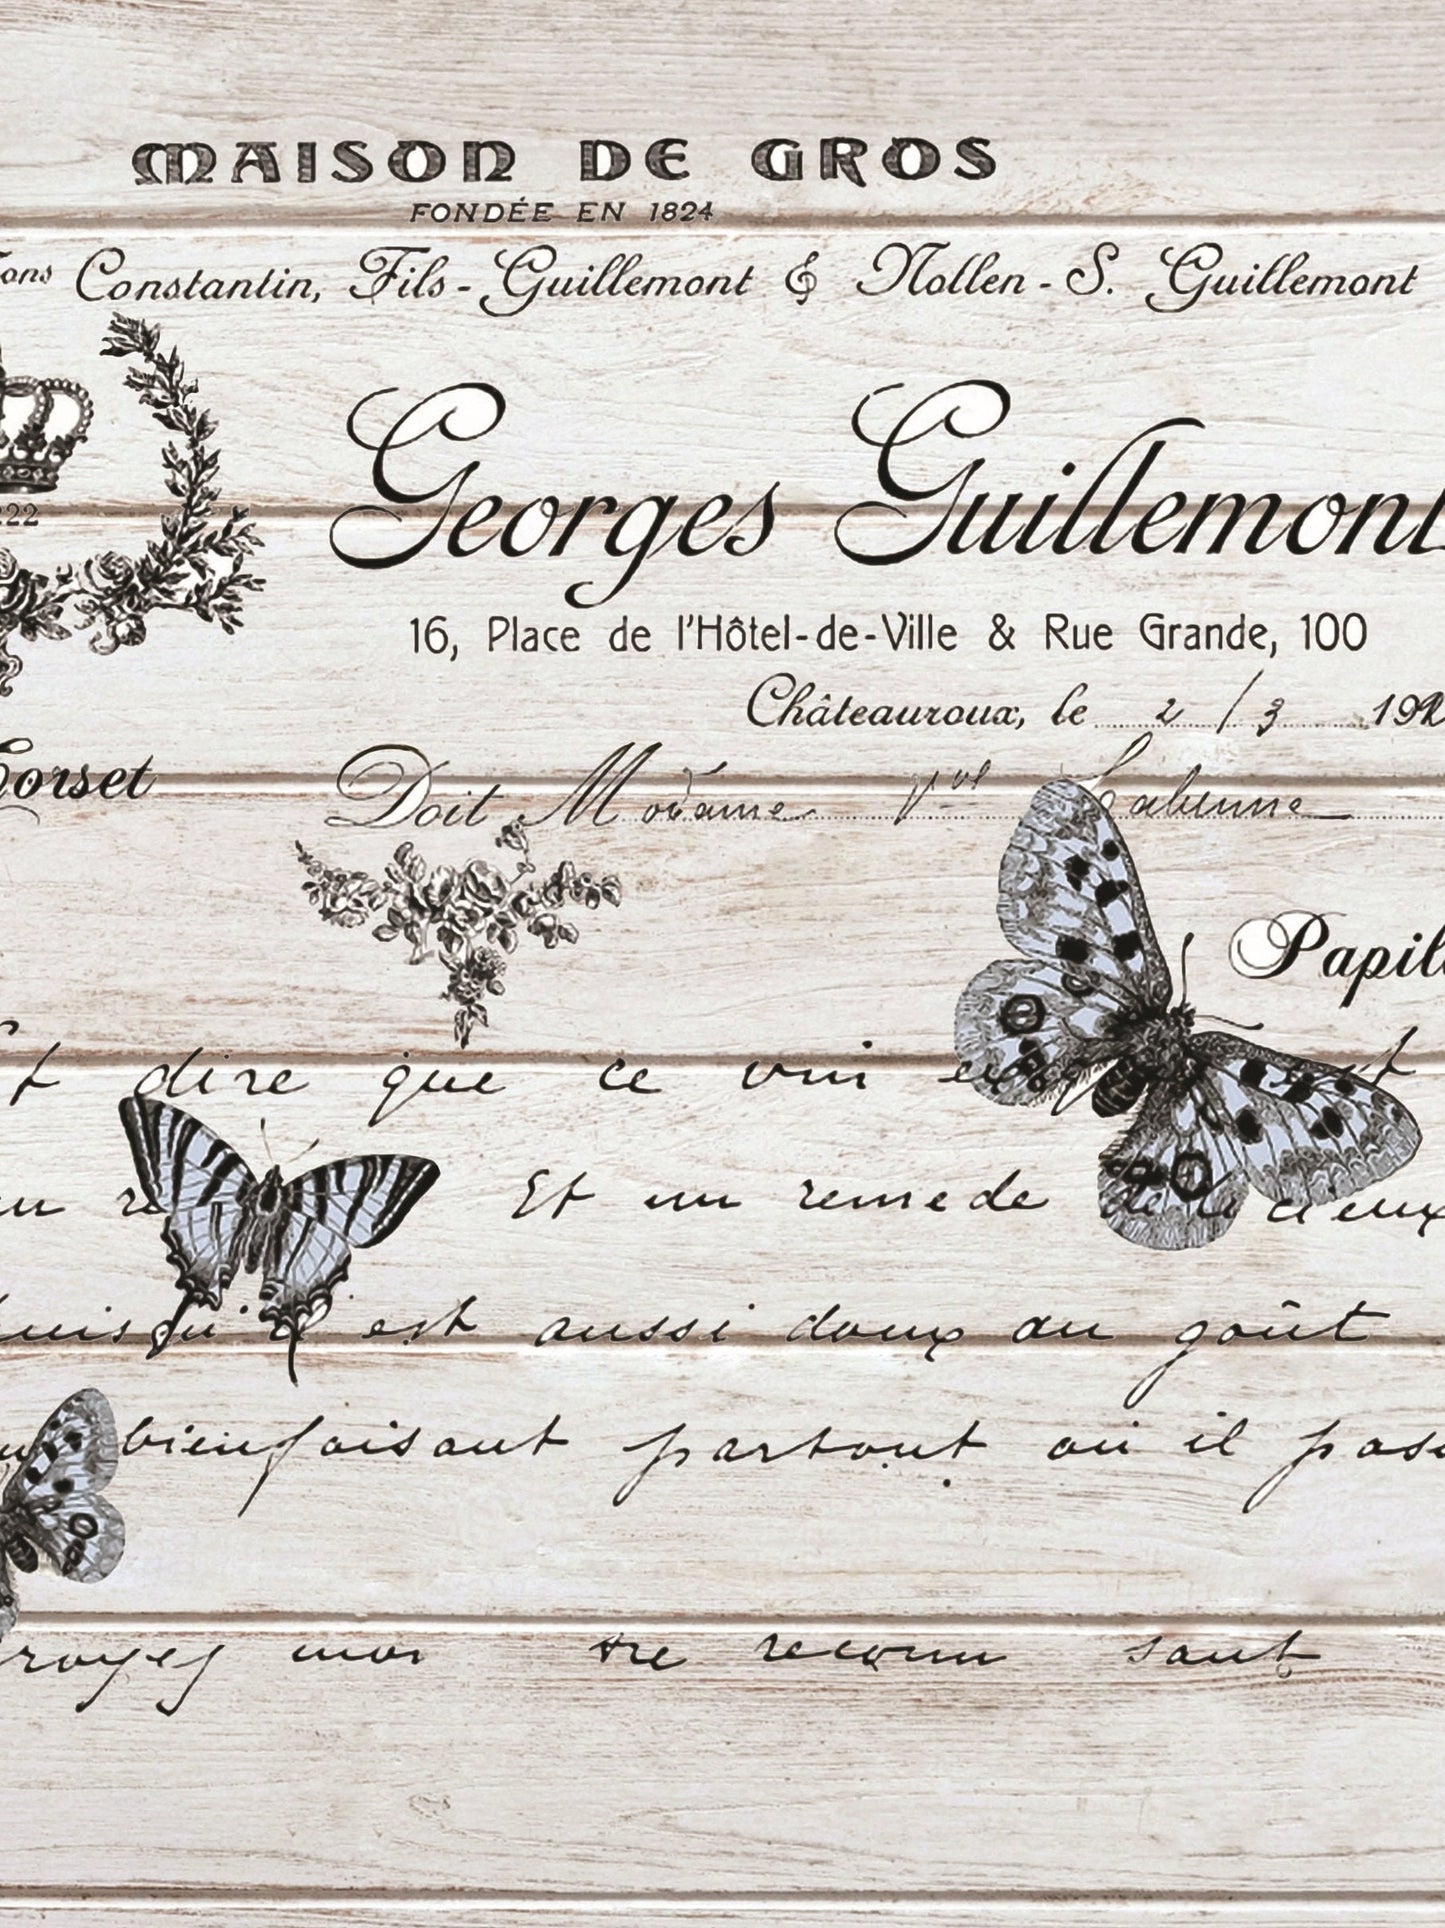 MAISON DE GROS
FONDÉE EN 1824
Constantin, Fils-Guillemont & Nollen-S. Guillemont
Georges Guillemont
222
16, Place de l'Hôtel-de-Ville & Rue Grande, 100
Châteauroux, le 2/3 192
Corset
Doit Madame
Papil
dire que ce vin
Et un remede de
est aussi doux au goût
bienfaisant partout où il pas
moi sant